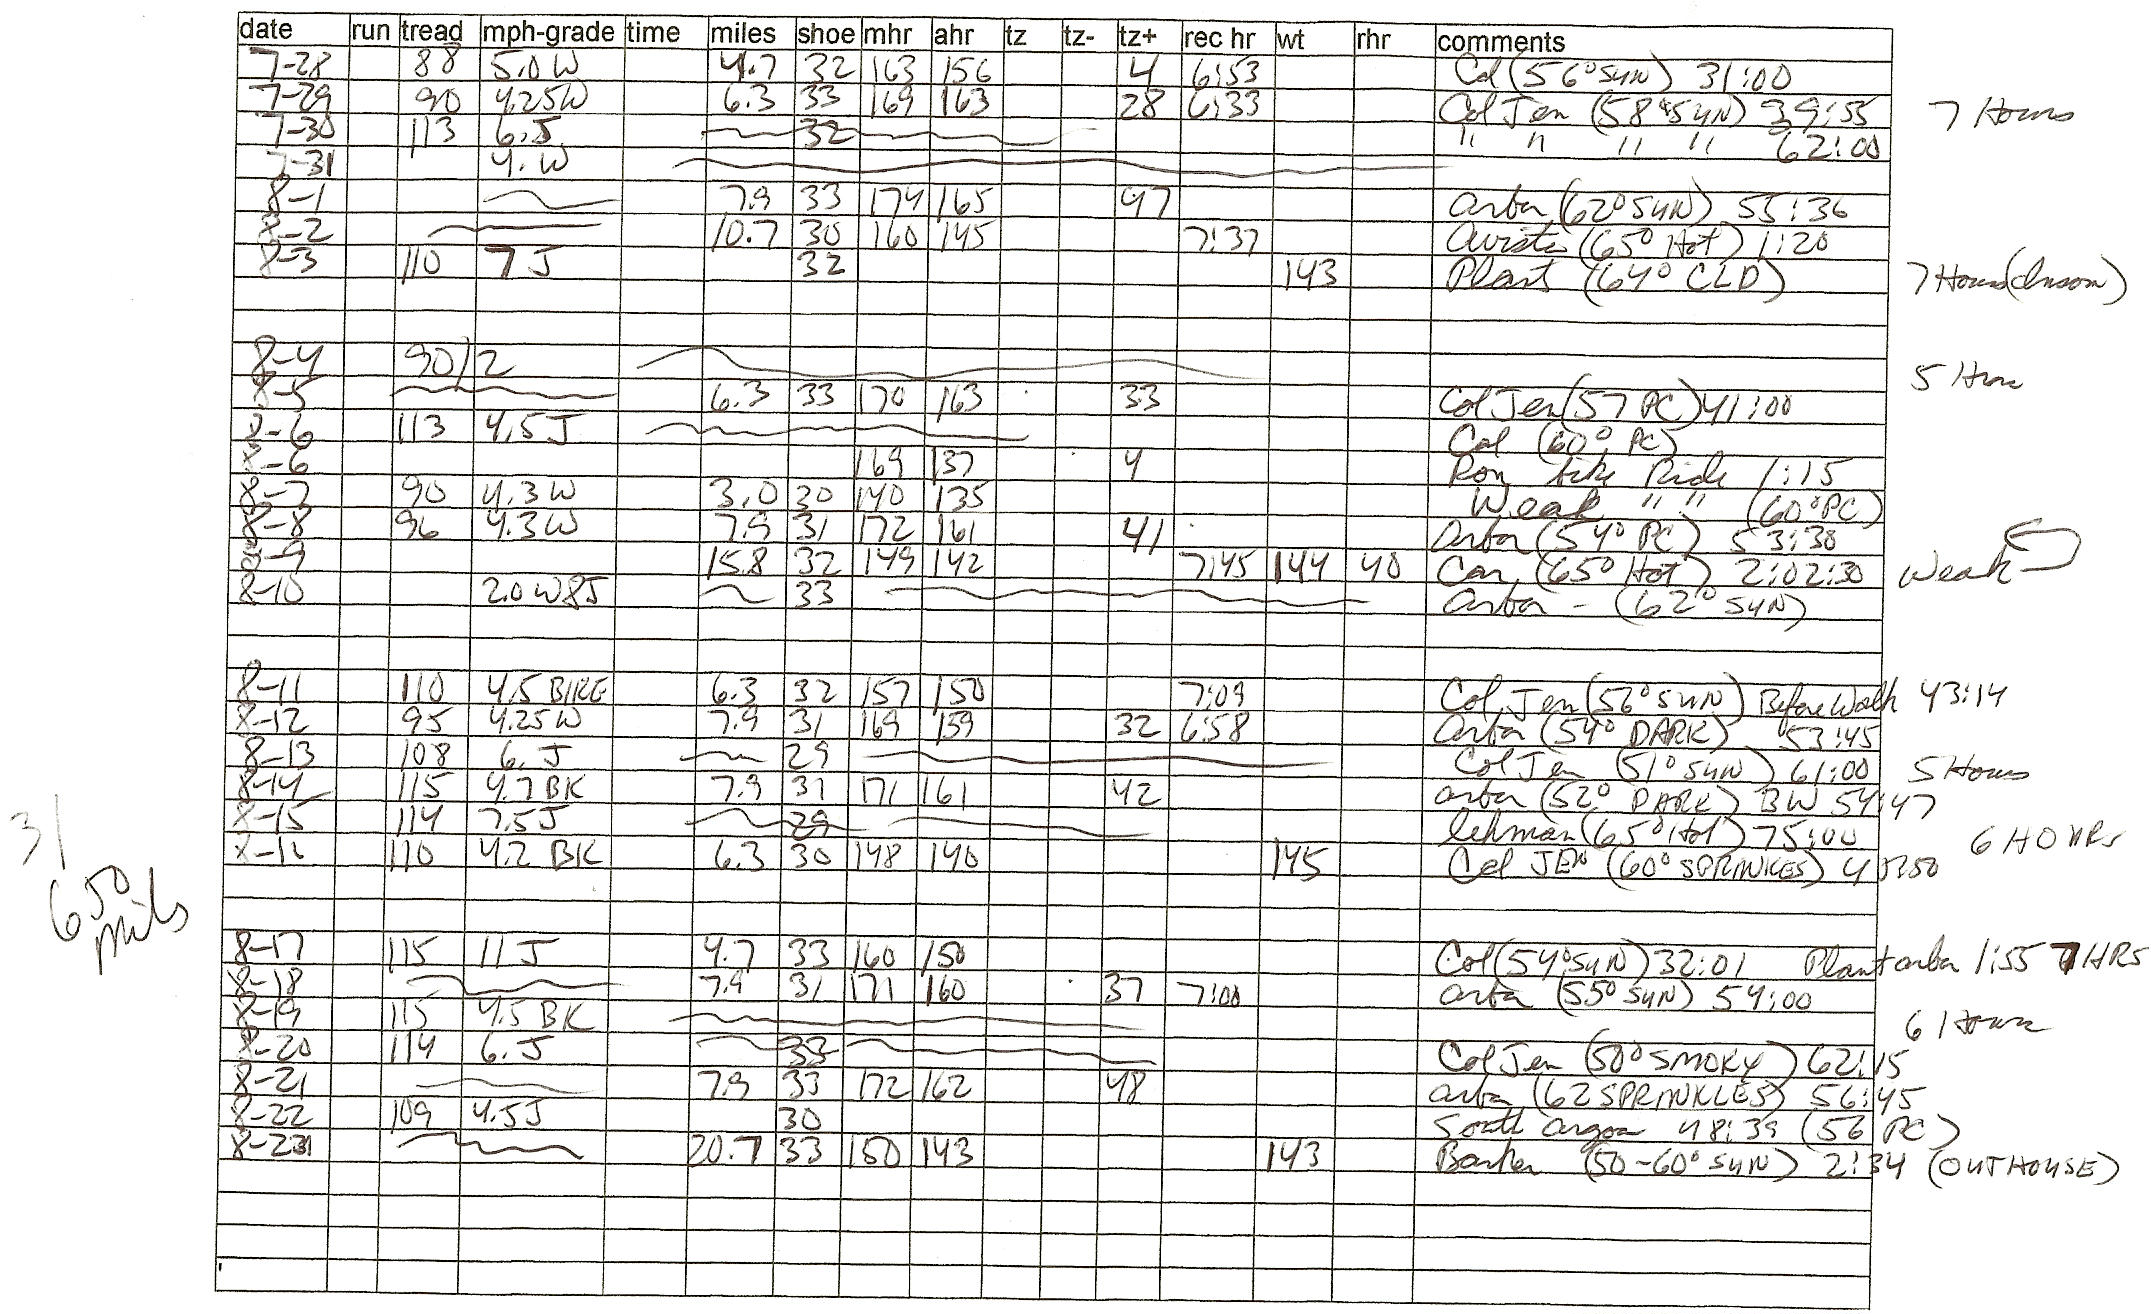 date run tread mph-grade time miles shoe mhr ahr tz tz- tz+ rec hr wt rhr comments
7-28 88 5.0 W 4.7 32 163 156 4 6:53 Col (56° SUN) 31:00
7-29 90 4.25W 6.3 33 169 163 28 6:33 Col Jen (58° SUN) 39:55 7 Hours
7-30 113 6.J 32 " " " " 62:00
7-31 4. W
8-1 7.9 33 174 165 47 arbor (62° SUN) 55:36
8-2 10.7 30 160 145 7:37 (65° Hot) 1:20
8-3 110 7 J 32 143 Plant (64° CLD) 7 Hours (Insom)
8-4 90/2 5 Hour
8-5 6.3 33 170 163 33 Col Jen (57 PC) 41:00
8-6 113 4.5 J Col (60° PC)
8-6 169 137 4 Ron bike Ride 1:15
8-7 90 4.3 W 3.0 30 140 135 Weak " " (60° PC)
8-8 96 4.3 W 7.9 31 172 161 41 Arbor (54° PC) 53:38
8-9 15.8 32 149 142 7:45 144 40 Car (65° Hot) 2:02:30 Weak
8-10 2.0 W8J 33 Arbor - (62° SUN)
8-11 110 4.5 BIKE 6.3 32 157 150 7:09 Col Jen (56° SUN) Before Walk 43:14
8-12 95 4.25 W 7.9 31 169 159 32 6:58 Arbor (54° DARK) 53:45
8-13 108 6. J 29 Col Jen (51° SUN) 61:00 5 Hours
8-14 115 4.7 BK 7.9 31 171 161 42 arbor (52° DARK) BW 54:47
8-15 114 7.5 J 29 lehman (65° Hot) 75:00 6 HOURS
31
650
miles
110 4.2 BK 6.3 30 148 140 145 Col JEN (60° SPRINKLES)
8-17 115 11 J 4.7 33 160 150 Col (54° SUN) 32:01 Plant arbor 1:55 7 HRS
8-18 7.9 31 171 160 37 7:00 arbor (55° SUN) 54:00
8-19 115 4.5 BK 6 Hours
8-20 114 6. J 33 Col Jen (50° SMOKY) 62:15
8-21 7.9 33 172 162 48 arbor (62 SPRINKLES) 56:45
8-22 109 4.5 J 30 South 48:39 (56 PC)
8-23 20.7 33 150 143 143 Barker (50-60° SUN) 2:34 (OUTHOUSE)